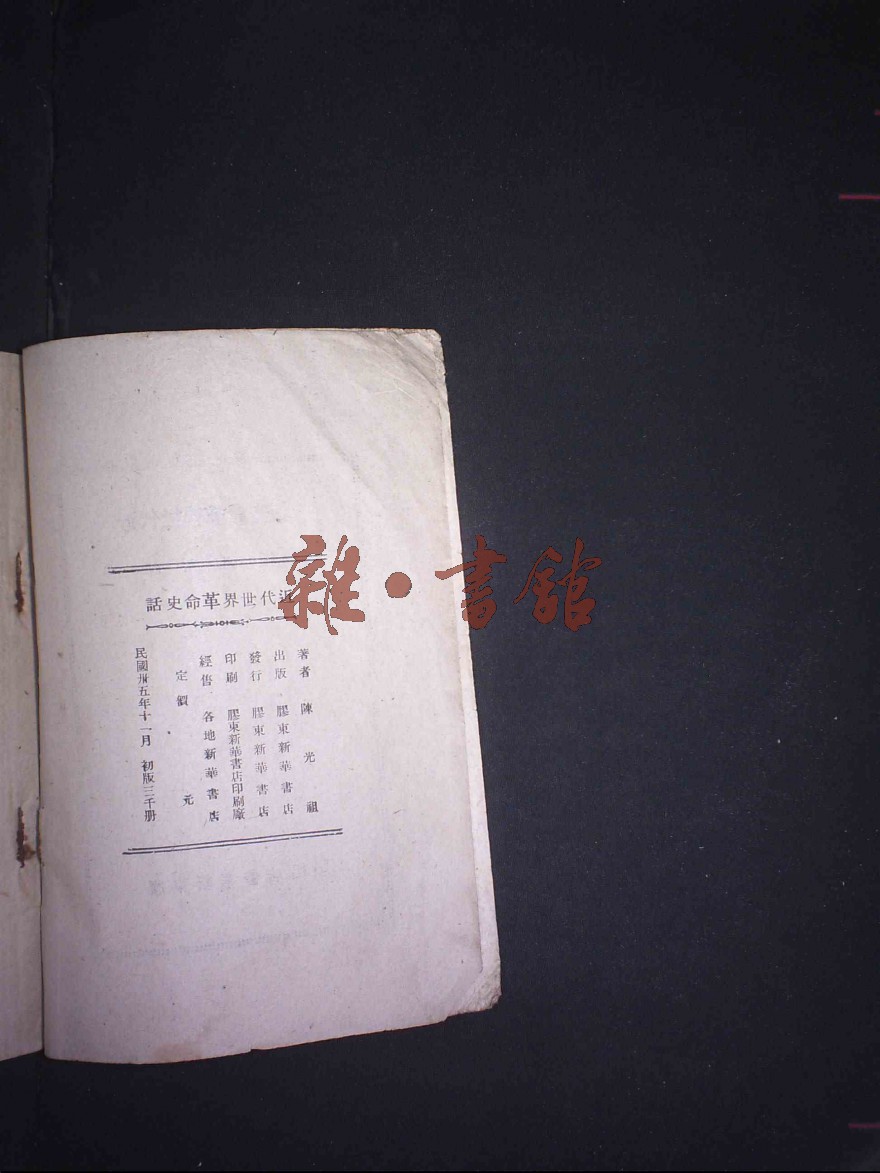 雜·書館
近代世界革命史話
著者 陳光祖
出版 膠東新華書店
發行 膠東新華書店
印刷 膠東新華書店印刷廠
經售 各地新華書店
定價 元
民國卅五年十一月 初版三千册